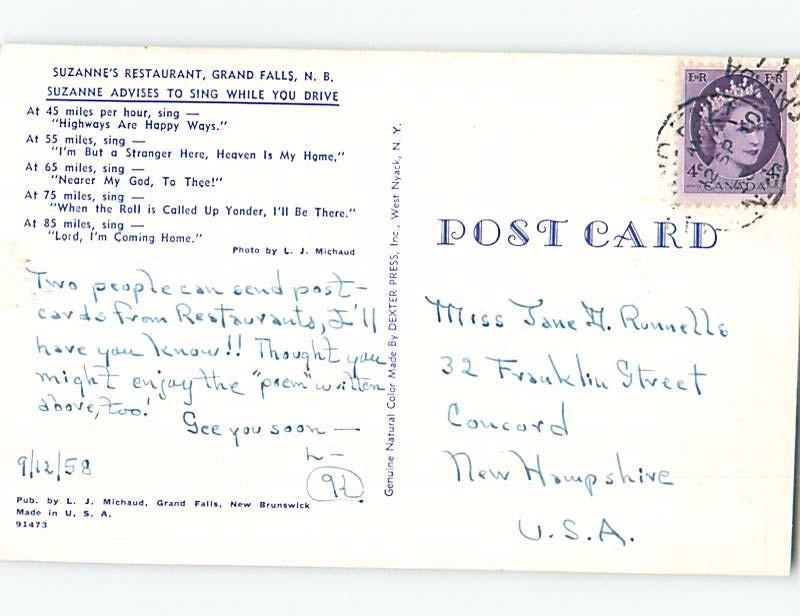 SUZANNE'S RESTAURANT, GRAND FALLS, N. B.
SUZANNE ADVISES TO SING WHILE YOU DRIVE
At 45 miles per hour, sing —
"Highways Are Happy Ways."
At 55 miles, sing —
"I'm But a Stranger Here, Heaven Is My Home."
At 65 miles, sing —
"Nearer My God, To Thee!"
At 75 miles, sing —
"When the Roll is Called Up Yonder, I'll Be There."
At 85 miles, sing —
"Lord, I'm Coming Home."
Photo by L. J. Michaud
Two people can send post-
cards from Restaurants, I'll
have you know!! Thought you
might enjoy the "poem" written
above, too!
See you soon —
L—
9/12/58
Pub. by L. J. Michaud, Grand Falls, New Brunswick
Made in U. S. A.
91473
Genuine Natural Color Made By DEXTER PRESS, Inc., West Nyack, N. Y.
E II R E II R
4¢ CANADA 4¢
CANADA
POST CARD
Miss Jane H. Runnells
32 Franklin Street
Concord
New Hampshire
U.S.A.